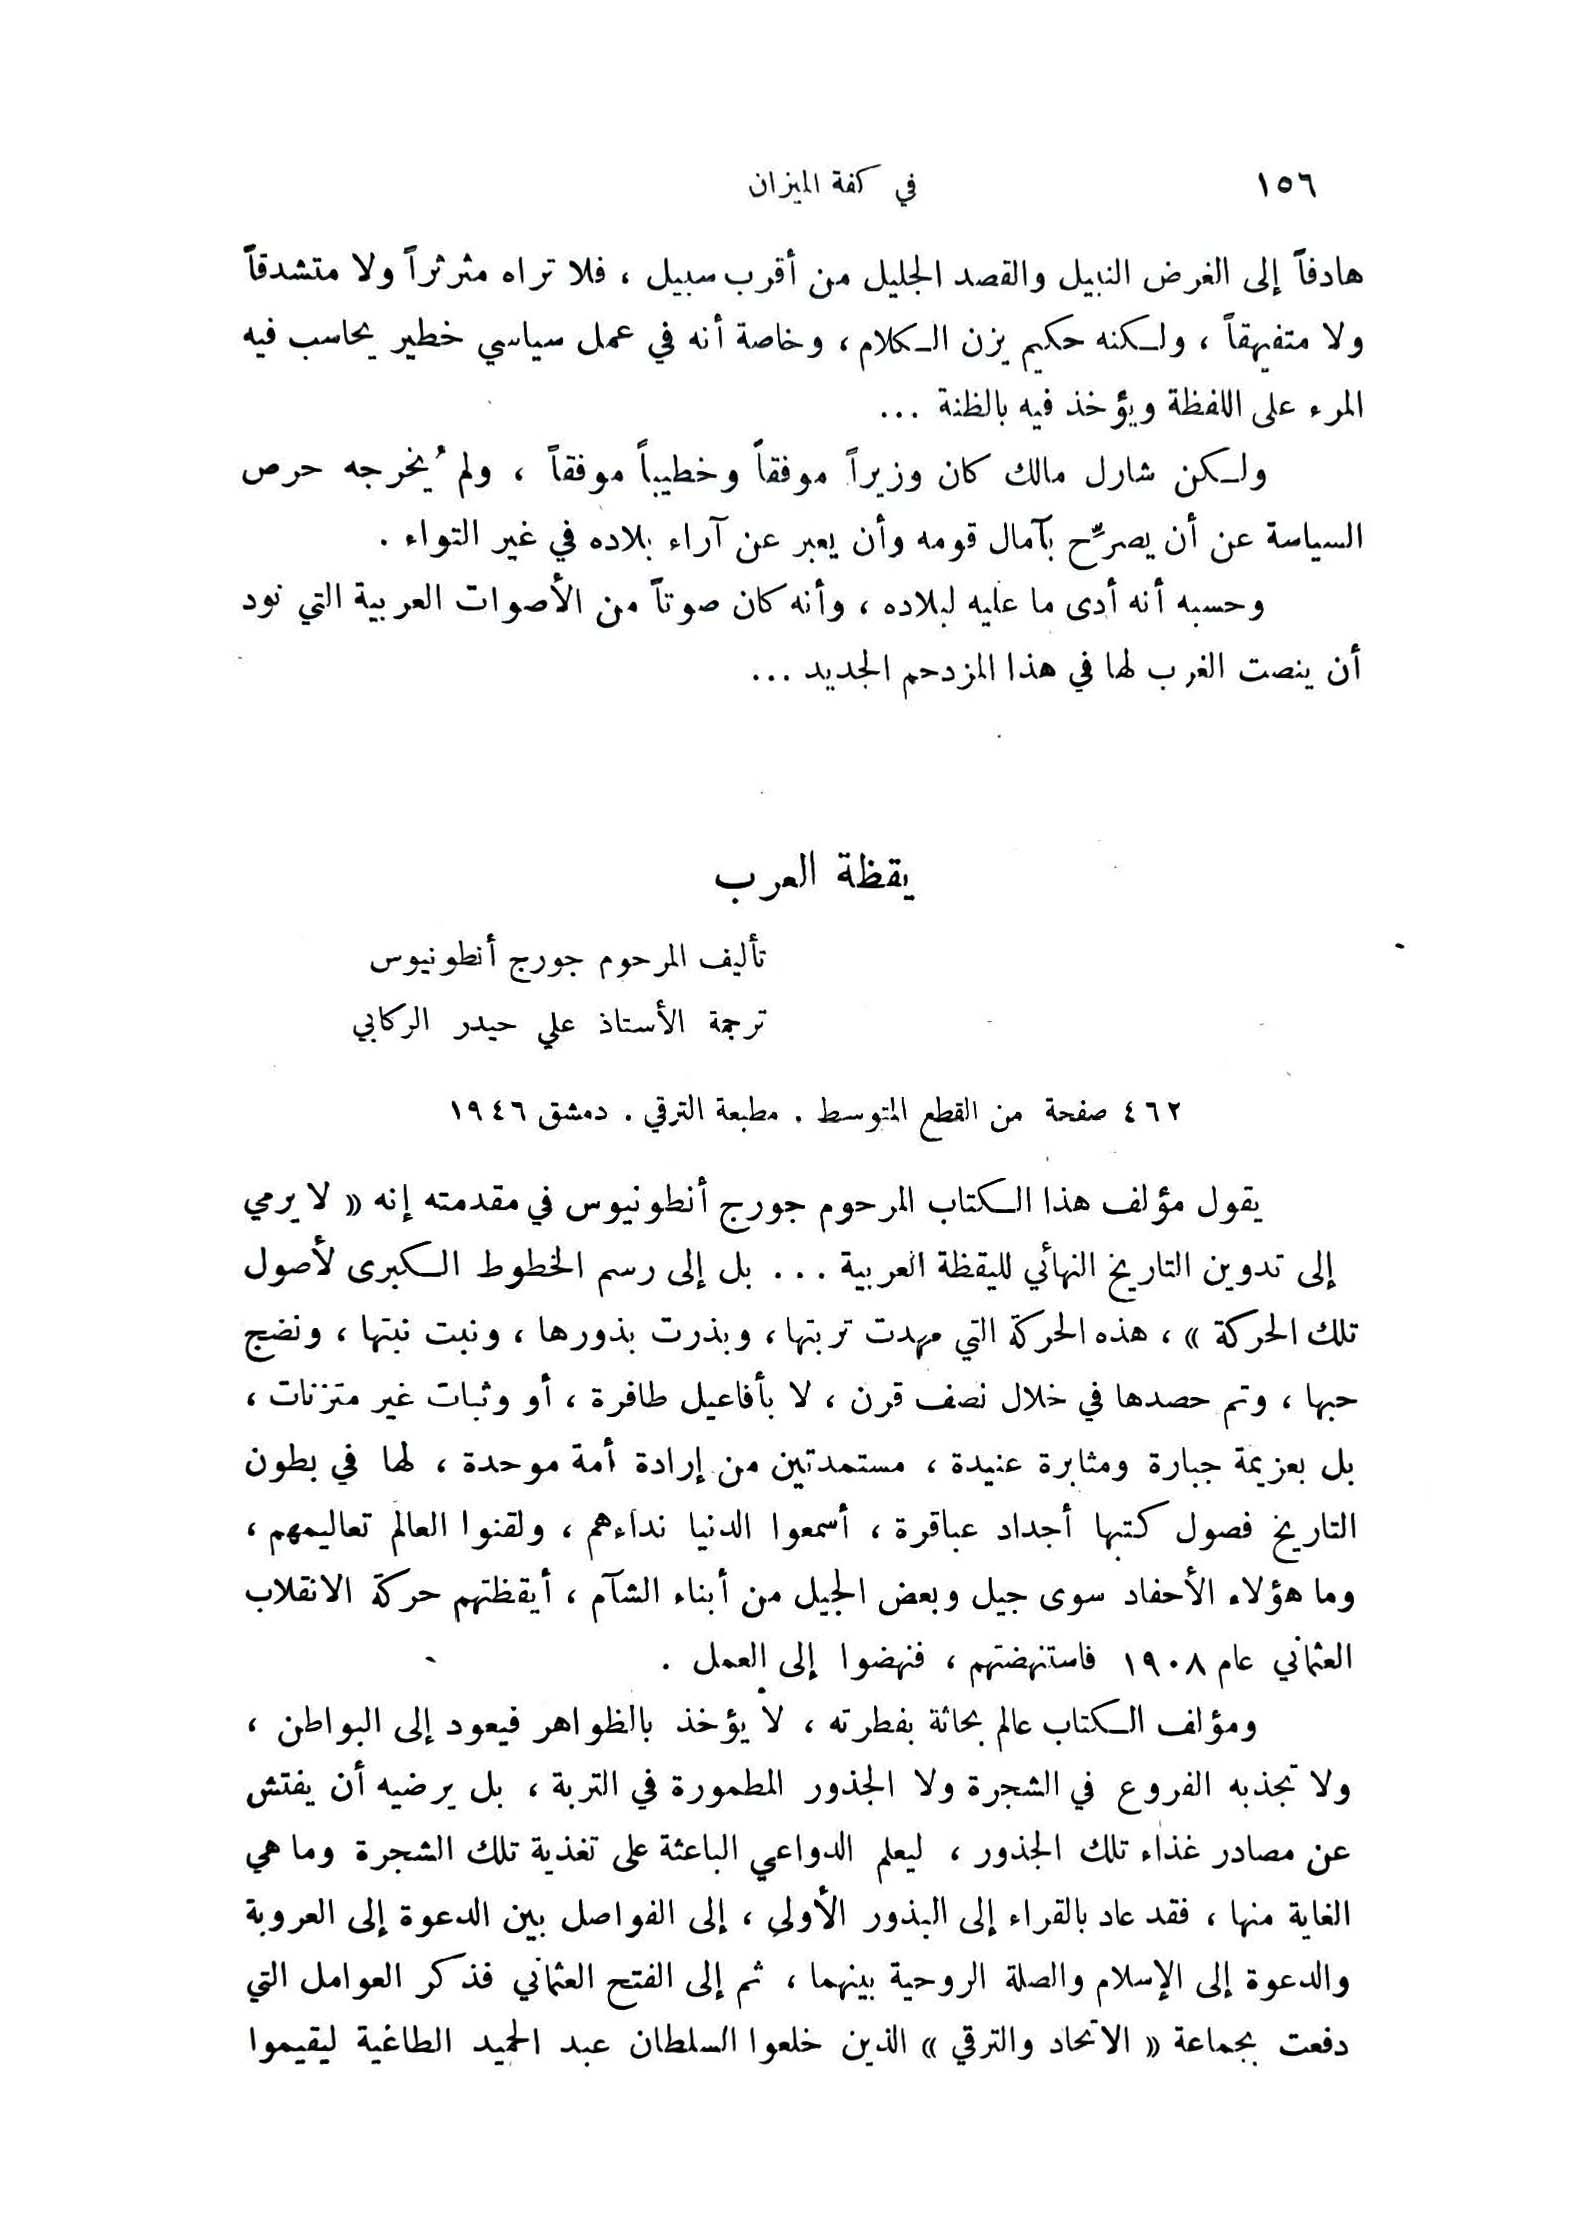 ١٥٦ في كفة الميزان
هادفاً إلى الغرض النبيل والقصد الجليل من أقرب سبيل ، فلا تراه مثرثراً ولا متشدقاً
ولا متفيهقاً ، ولكنه حكيم يزن الكلام ، وخاصة أنه في عمل سياسي خطير يحاسب فيه
المرء على اللفظة ويؤخذ فيه بالظنة ...
ولكن شارل مالك كان وزيراً موفقاً وخطيباً موفقاً ، ولم يُخرجه حرص
السياسة عن أن يصرِّح بآمال قومه وأن يعبر عن آراء بلاده في غير التواء .
وحسبه أنه أدى ما عليه لبلاده ، وأنه كان صوتاً من الأصوات العربية التي نود
أن ينصت الغرب لها في هذا المزدحم الجديد ...
يقظة العرب
تأليف المرحوم جورج أنطونيوس
ترجمة الأستاذ علي حيدر الركابي
٤٦٢ صفحة من القطع المتوسط . مطبعة الترقي . دمشق ١٩٤٦
يقول مؤلف هذا الكتاب المرحوم جورج أنطونيوس في مقدمته إنه « لا يرمي
إلى تدوين التاريخ النهائي لليقظة العربية ... بل إلى رسم الخطوط الكبرى لأصول
تلك الحركة » ، هذه الحركة التي مهدت تربتها ، وبذرت بذورها ، ونبت نبتها ، ونضج
حبها ، وتم حصدها في خلال نصف قرن ، لا بأفاعيل طافرة ، أو وثبات غير متزنات ،
بل بعزيمة جبارة ومثابرة عنيدة ، مستمدتين من إرادة أمة موحدة ، لها في بطون
التاريخ فصول كتبها أجداد عباقرة ، أسمعوا الدنيا نداءهم ، ولقنوا العالم تعاليمهم ،
وما هؤلاء الأحفاد سوى جيل وبعض الجيل من أبناء الشآم ، أيقظتهم حركة الانقلاب
العثماني عام ١٩٠٨ فاستنهضتهم ، فنهضوا إلى العمل .
ومؤلف الكتاب عالم بحاثة بفطرته ، لا يؤخذ بالظواهر فيعود إلى البواطن ،
ولا تجذبه الفروع في الشجرة ولا الجذور المطمورة في التربة ، بل يرضيه أن يفتش
عن مصادر غذاء تلك الجذور ، ليعلم الدواعي الباعثة على تغذية تلك الشجرة وما هي
الغاية منها ، فقد عاد بالقراء إلى البذور الأولى ، إلى الفواصل بين الدعوة إلى العروبة
والدعوة إلى الإسلام والصلة الروحية بينهما ، ثم إلى الفتح العثماني فذكر العوامل التي
دفعت بجماعة « الاتحاد والترقي » الذين خلعوا السلطان عبد الحميد الطاغية ليقيموا